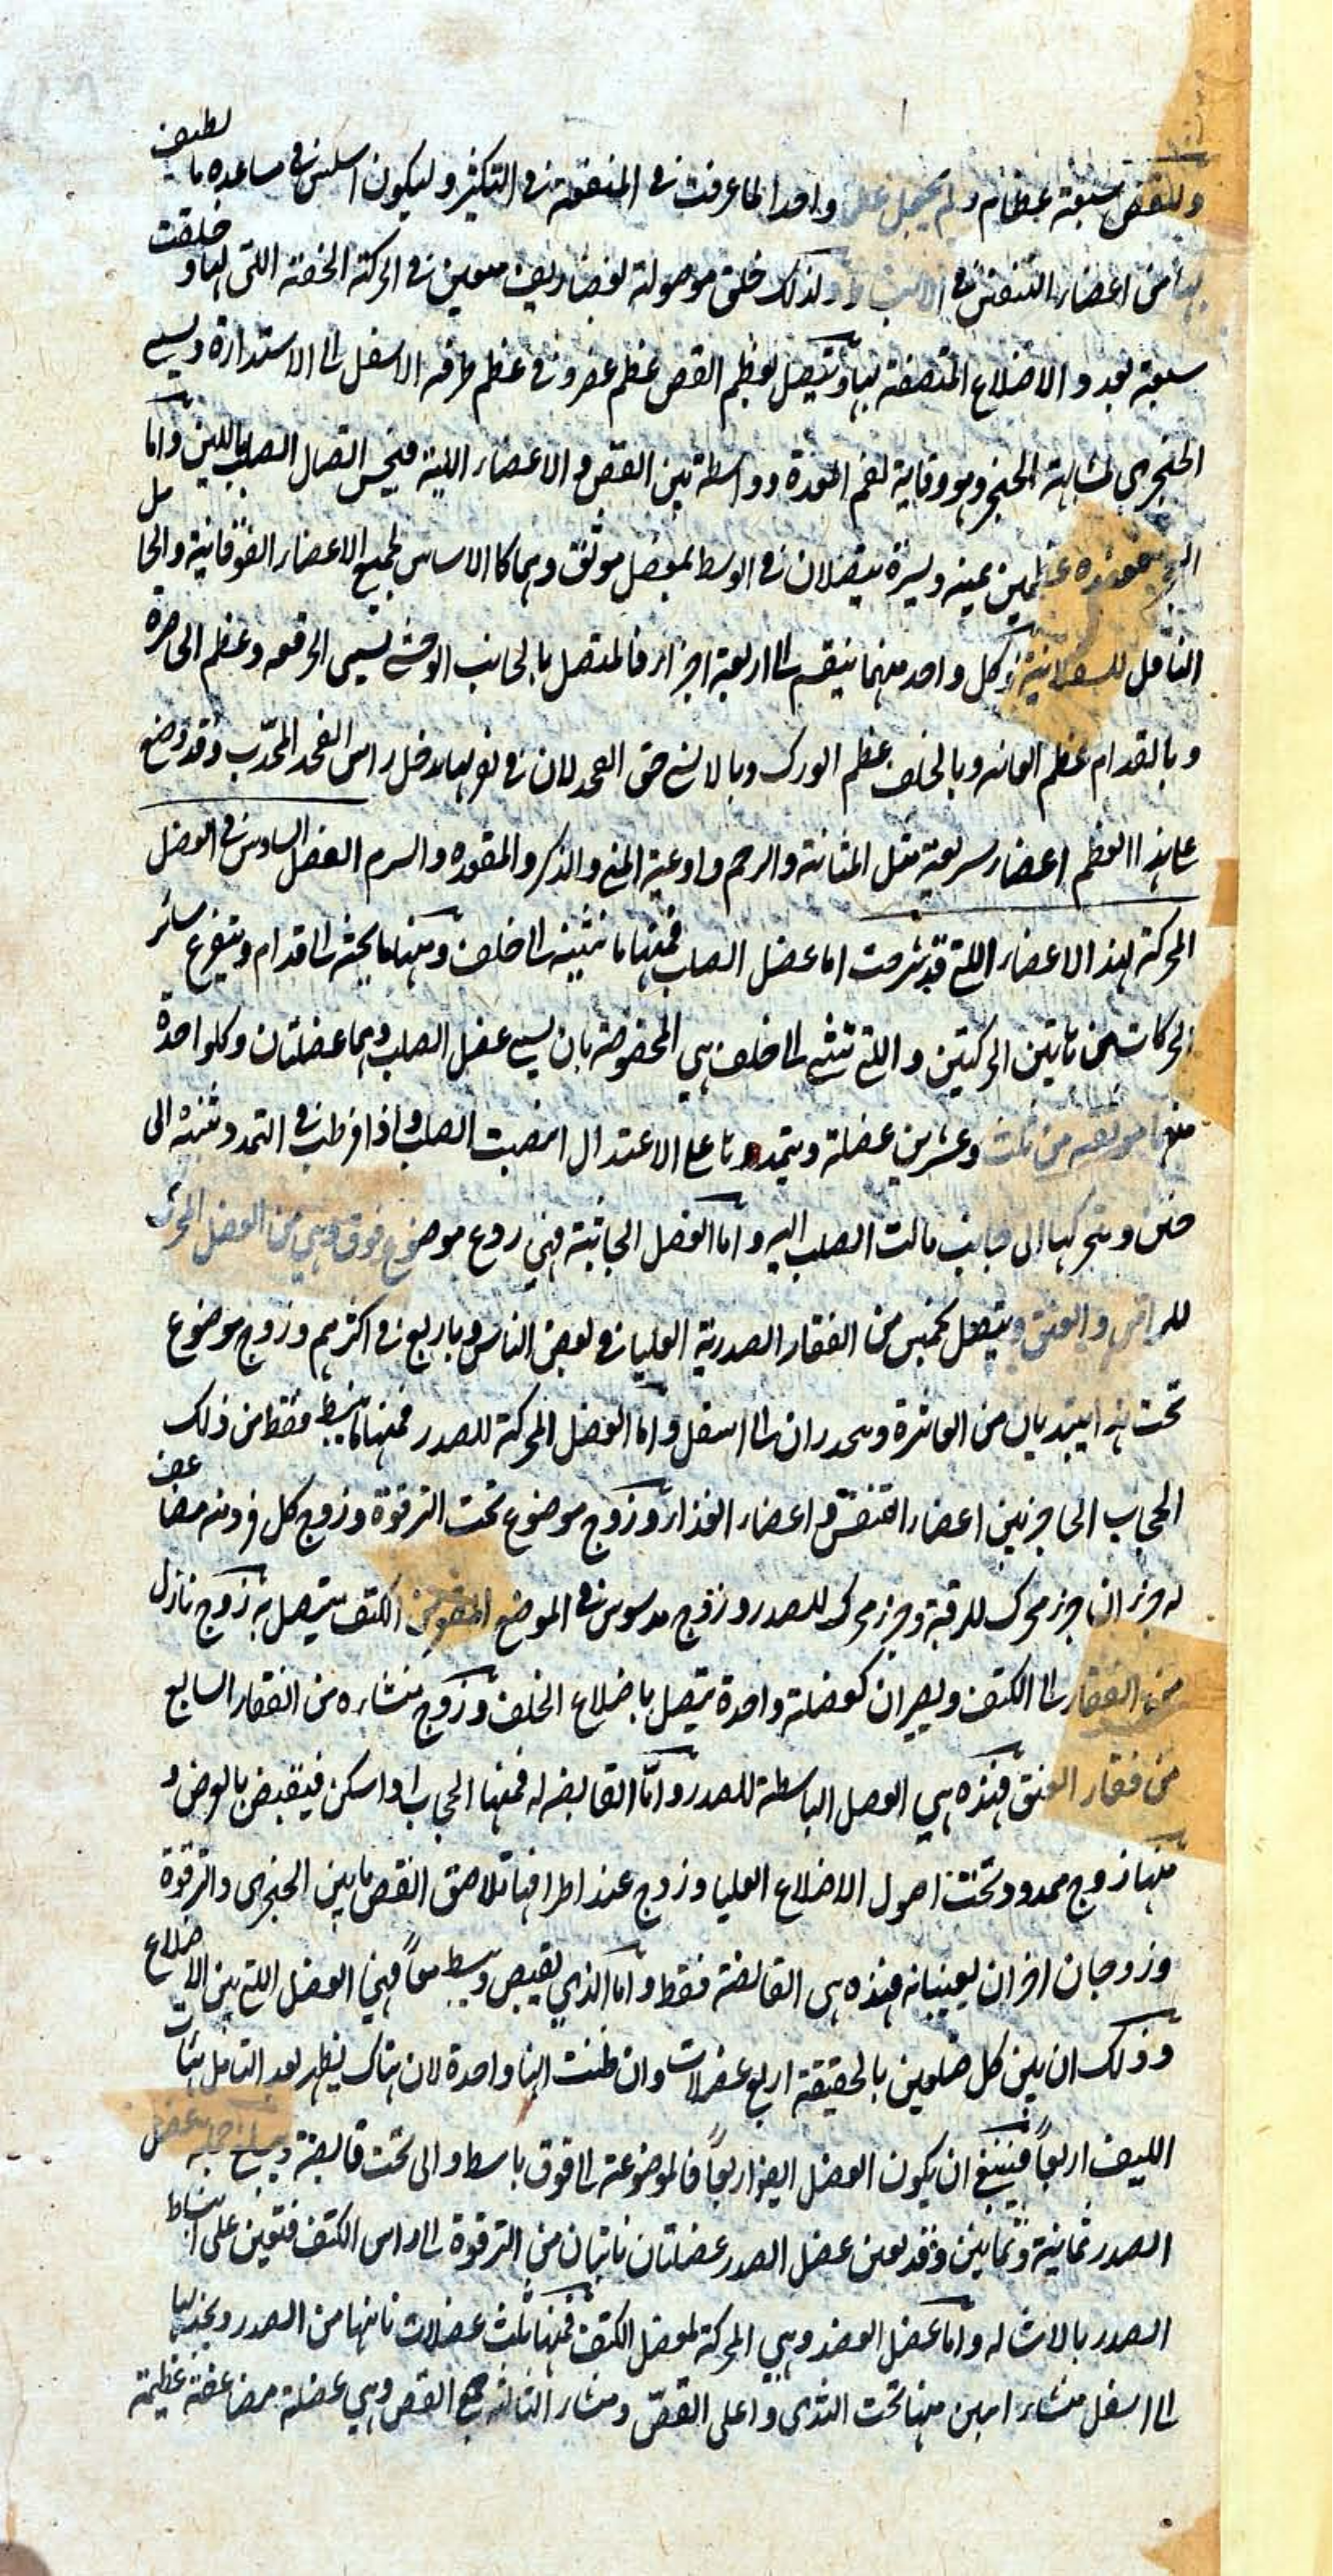 وللقص سبعة عظام ولم يجعل عظما واحدا لما عرفت في المنفعة في التكثير وليكون اسلس في مساعده ما لطيف
بها من اعضاء التنفس في الانبساط ولذلك خلق موصولة بغضاريف معين في الحركة الخفية اللتى لها و خلقت
سبعة بعدد الاضلاع الملتصقة بها ويتصل بعظم القص عظم غضروفي عظم طرفه الاسفل الى الاستدارة ويسمى
الخنجرى لمشابهته الخنجر وهو وقاية لفم المعدة وواسطة بين القص و الاعضاء اللينة فيحسن اتصال الصلب باللين واما
العجز فعنده عظمين يمينه ويسرة يتصلان في الوسط بمفصل موثق وهما كالاساس لجميع الاعضاء الفوقانية والحا مل
الناقل للسفلانية وكل واحد منهما ينقسم الى اربعة اجزاء فالمتصل بالجانب الوحشى يسمى الحرقفه وعظم الخاصرة
وبالقدام عظم العانه وبالخلف عظم الورك وبالانسى حق الفخد لان في تقعيرها يدخل راس الفخد المحدّب وقد وضع
على هذا العظم اعضاء شريفة مثل المثانة والرحم واوعية المنى والذكر والمقعده والسرم الفصل السادس في العضل
المحركة لهذ الاعضاء اللتى قد شرحت اما عضل الصلب فمنها ما تثنيه الى خلف ومنها ما يحنيه الى قدام ويتفرع سائر
الحركات من هاتين الحركتين واللتى تثنى الى خلف هي المخصوصة بان يسمى عضل الصلب وهما عضلتان وكل واحدة
منهما مؤلفه من ثلث وعشرين عضلة ويتمددها على الاعتدال انتصبت الصلب واذا افرطت في التمدد ثنته الى
خلف وبتحركها الى جانب مالت الصلب اليه واما العضل الحانية فهي زوج موضوع فوق وهي من العضل المحرك
للراس والعنق ويتصل بخمس من الفقار الصدرية العليا في بعض الناس وباربع في اكثرهم وزوج موضوع
تحت هذا يبتديان من العاشرة وينحدران الى اسفل واما العضل المحركة للصدر فمنها ما يبسط فقط من ذلك
الحجاب الحاجز بين اعضاء التنفس و اعضاء الغذاء وزوج موضوع تحت الترقوة وزوج كل فرد منه مضا عف
له جزان جزء محرك للرقبة وجزء محرك للصدر وزوج مدسوس في الموضع المقعر من الكتف يتصل به زوج نازل
من الفقار الى الكتف ويصيران كعضلة واحدة تتصل باضلاع الخلف وزوج منشاءه من الفقار السابع
من فقار العنق فهذه هي العضل الباسطة للصدر واما القابضه له فمنها الحجاب اذا سكن فينقبض بالعرض و
منها زوج ممدود تحت اصول الاضلاع العليا وزوج عند اطرافها تلاصق القص ما بين الخنجرى والترقوة
وزوجان اخران يعينانه فهذه هي القابضة فقط واما الذي يقبض ويبسط معاً فهي العضل اللتى بين الاضلاع
وذلك ان بين كل ضلعين بالحقيقة اربع عضلات وان ظنت انها واحدة لان هناك يظهر بعد التامل هيئات
الليف اربعاً فينبغى ان يكون العضل ايضا اربعاً فالموضوعة الى فوق باسط والى تحت قابضة ويبلغ جملة عضل
الصدر ثمانية وثمانين وقد يعين عضل الصدر عضلتان تاتيان من الترقوة الى راس الكتف فتعين على انبساط
الصدر بالاشاله واما عضل العضد وهي المحركة لمفصل الكتف فمنها ثلث عضلات تاتيها من الصدر ويجذبها
الى اسفل منشاء اثنين منها تحت الثدى واعلى القصّ ومنشاء الثالثه جميع القص وهي عضلة مضاعفة عظيمة